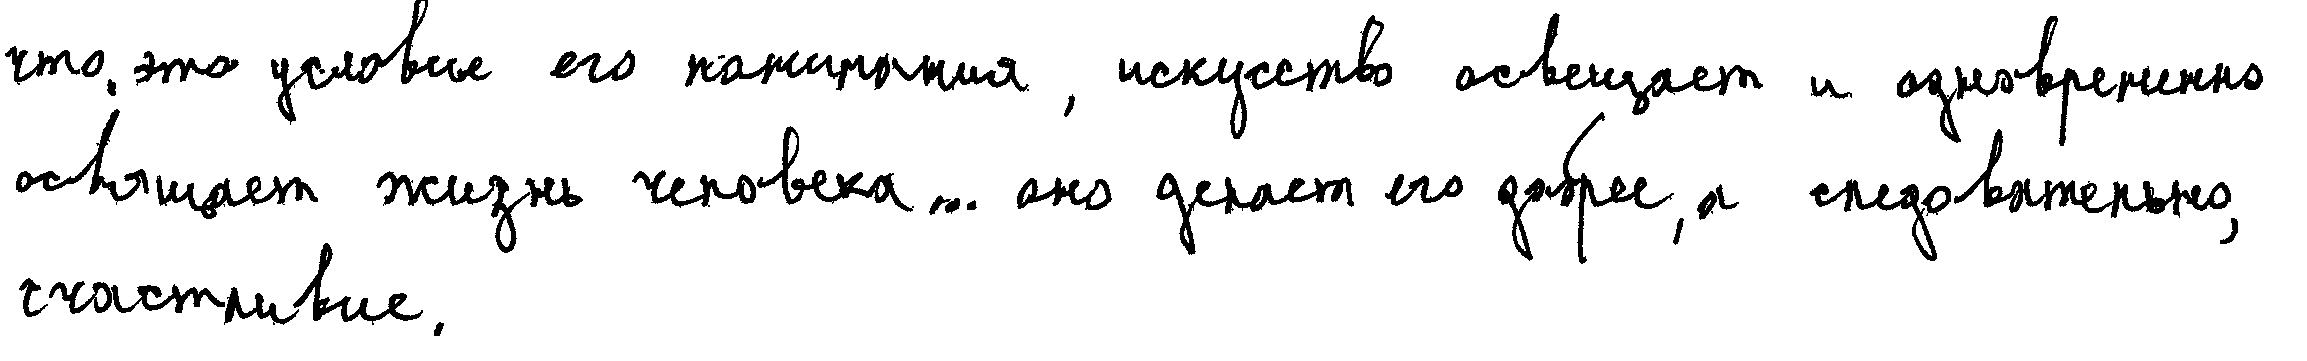 что, это условие его понимания, искусство освещает и одновременно
освящает жизнь человека... оно делает его добрее, а следовательно,
счастливие.